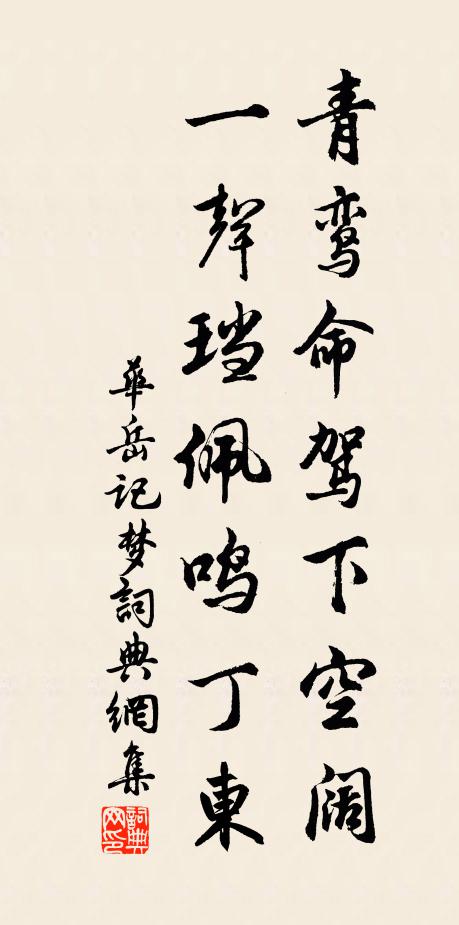 青鸾命驾下空阔
一聲珰佩鸣丁東
華岳记梦詞典網集
詞典网印